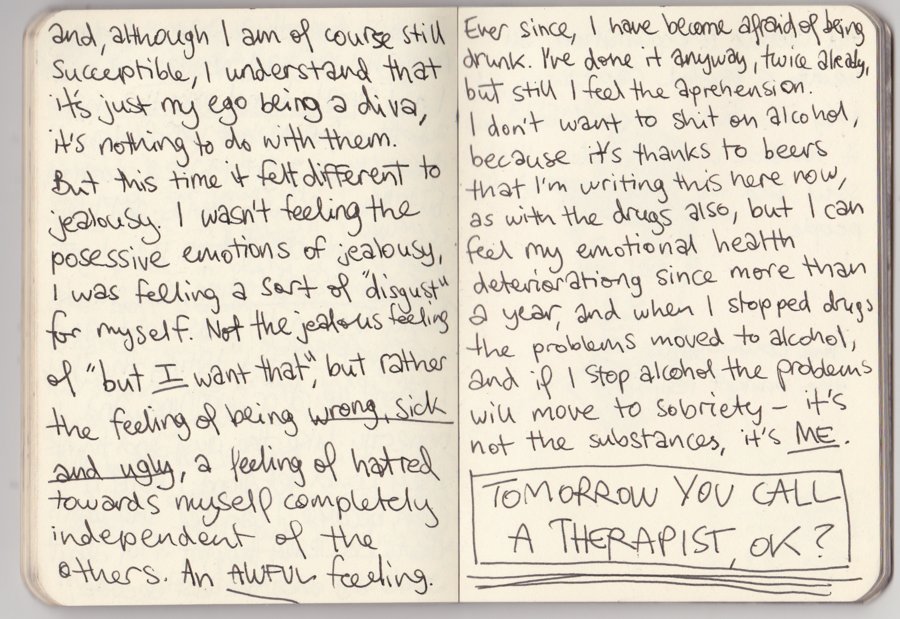 and, although I am of course still
succeptible, I understand that
it's just my ego being a diva,
it's nothing to do with them.
But this time it felt different to
jealousy. I wasn't feeling the
posessive emotions of jealousy,
I was felling a sort of "disgust"
for myself. Not the jealous feeling
of "but I want that", but rather
the feeling of being wrong, sick
and ugly, a feeling of hatred
towards myself completely
independent of the
others. An AWFUL feeling.
Ever since, I have become afraid of being
drunk. I've done it anyway, twice alredy,
but still I feel the aprehension.
I don't want to shit on alcohol,
because it's thanks to beers
that I'm writing this here now,
as with the drugs also, but I can
feel my emotional health
deterioriationg since more than
a year, and when I stopped drugs
the problems moved to alcohol,
and if I stop alcohol the problems
will move to sobriety – it's
not the substances, it's ME.
TOMORROW YOU CALL
A THERAPIST, OK?